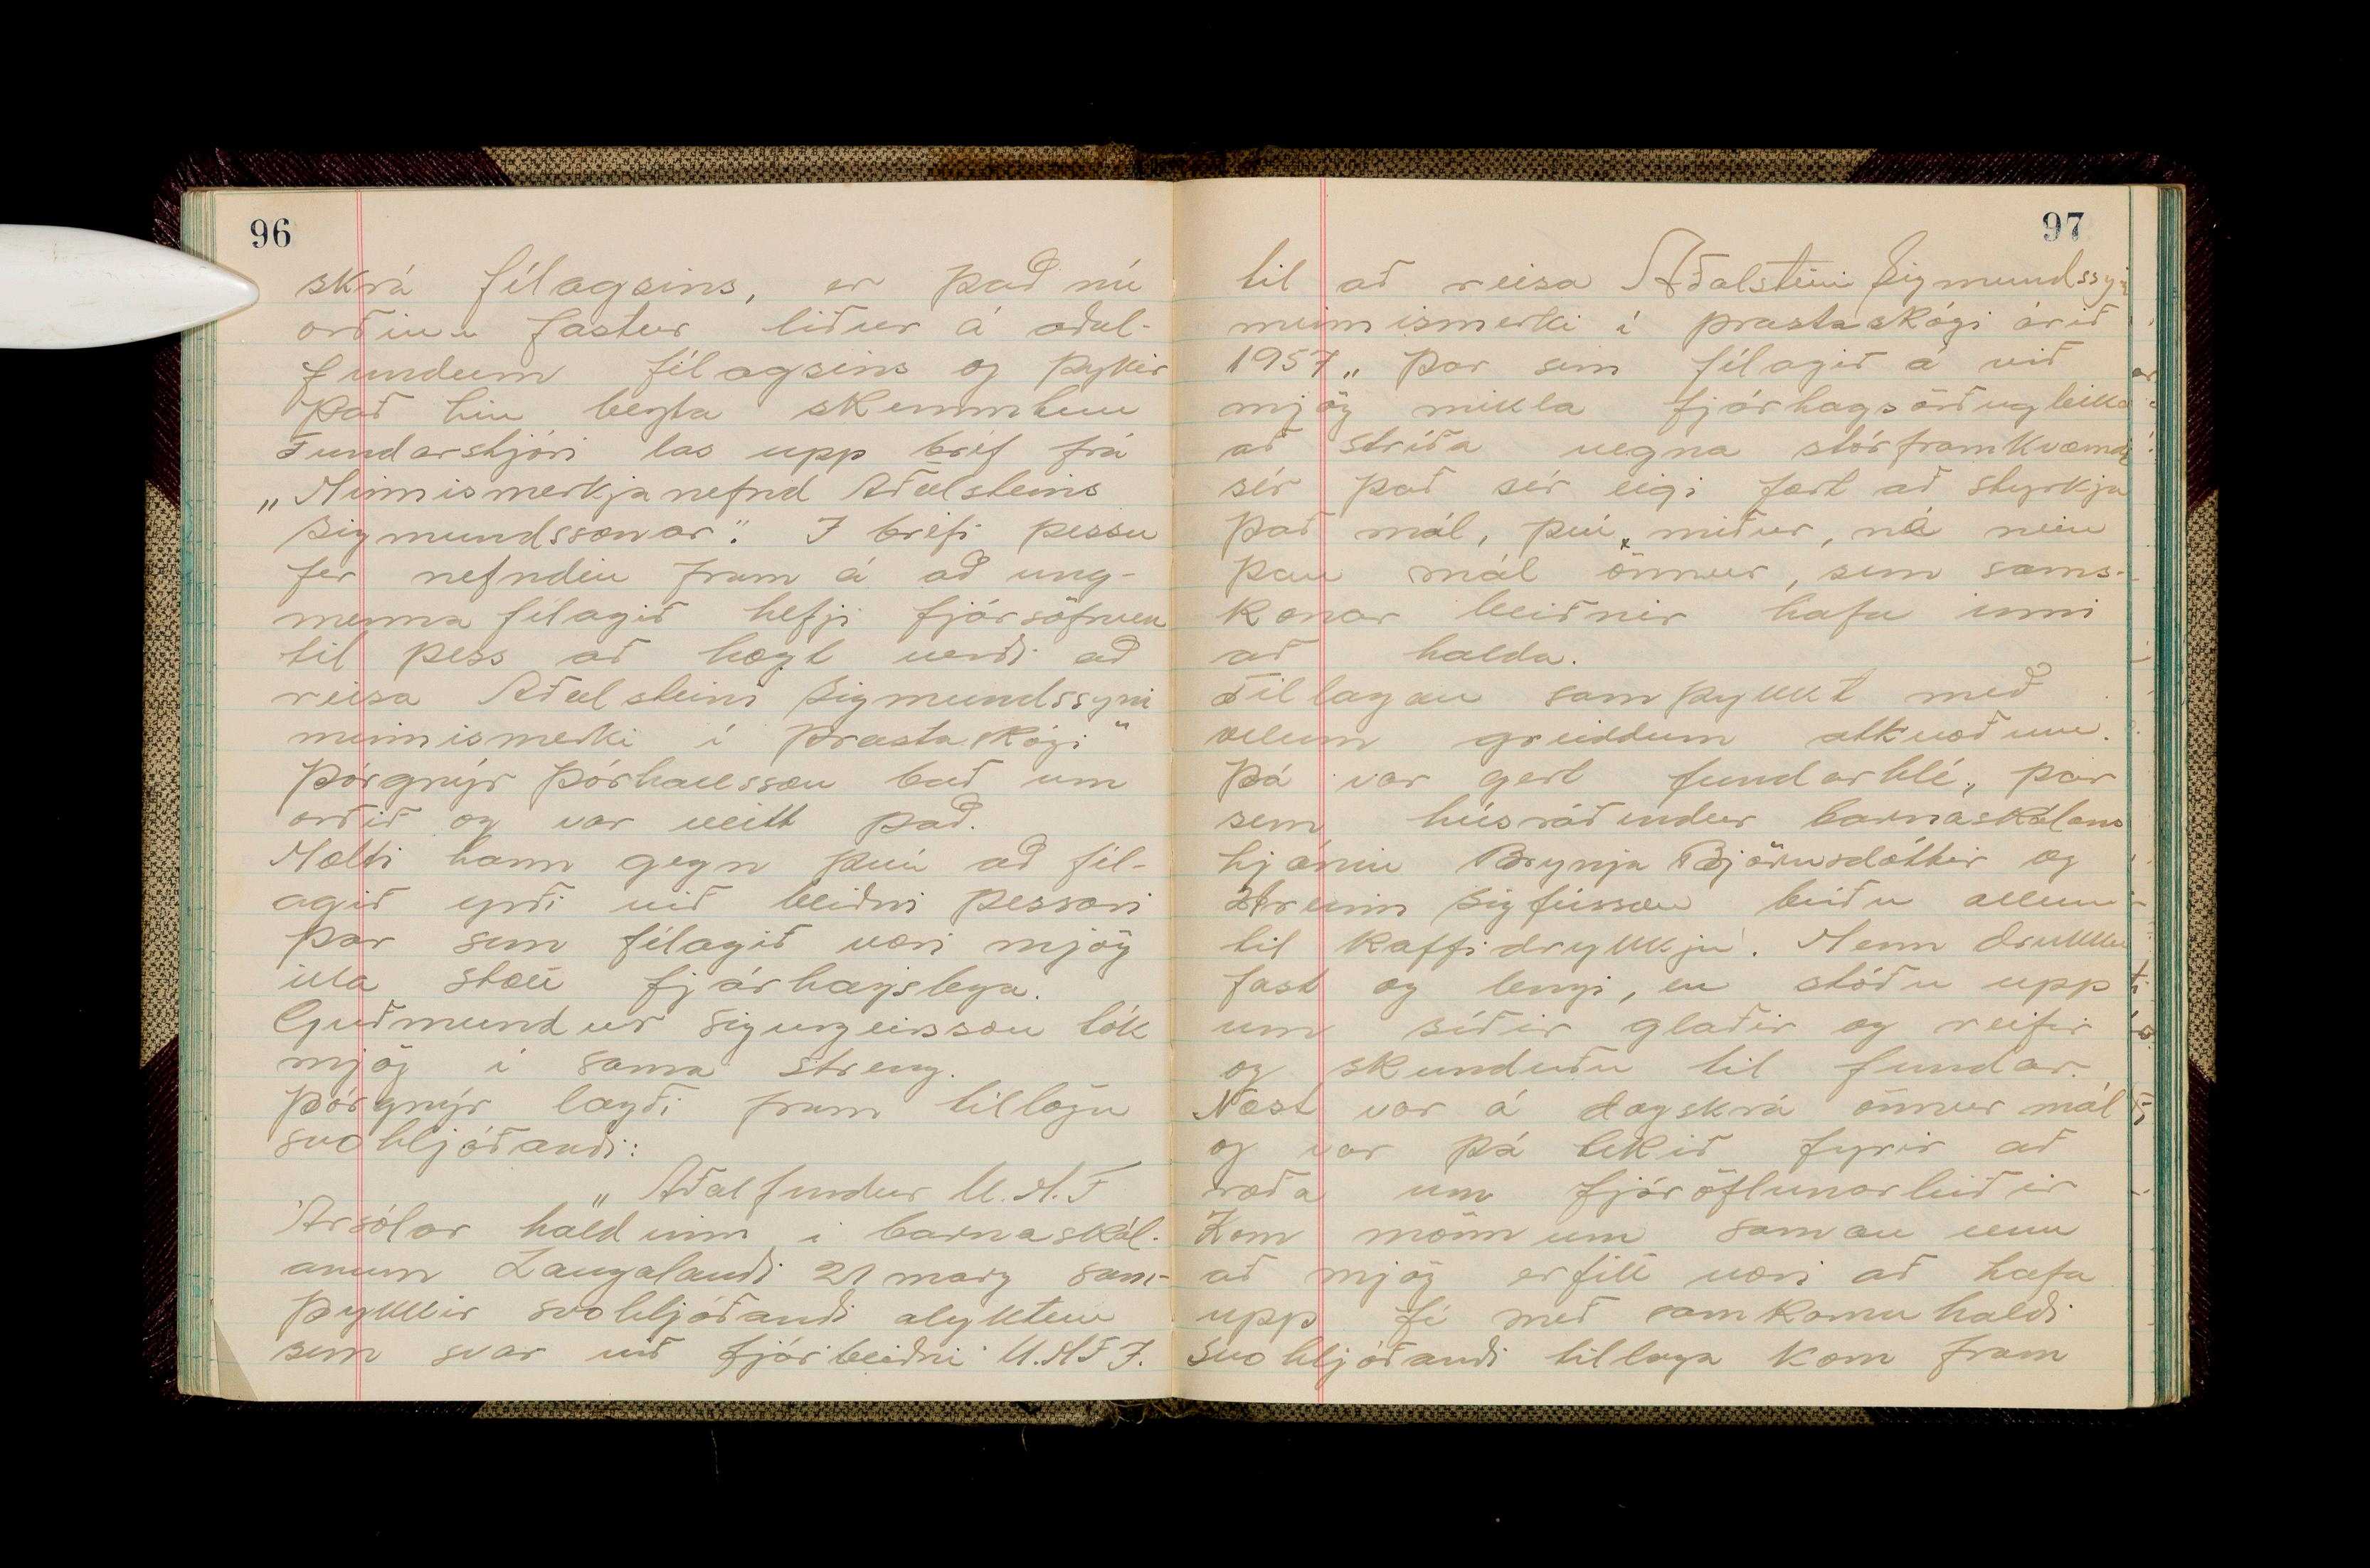 96
skrá félagsins, er það nú
orðinn fastur liður á aðal-
fundum félagsins og þykir
það hin bezta skemmtun
Fundarstjóri las upp bréf frá
„Minnismerkjanefnd Aðalsteins
Sigmundssonar". I bréfi þessu
fer nefndin fram á að ung-
menna félagið hefji fjársöfnun
til þess að hægt verði að
reisa Aðalsteini Sigmundssyni
minnismerki í Þrastaskógi"
Þórgnýr Þórhallsson bað um
orðið og var veitt það.
Mælti hann gegn því að fél-
agið yrði við beiðni þessari
þar sem félagið væri mjög
illa stætt fjárhagslega.
Guðmundur Sigurgeirsson tók
mjög í sama streng.
Þórgnýr lagði fram tillögu
svohljóðandi:
„Aðalfundur U.M.F
Ársólar haldinn í barnaskól-
anum Laugalandi 21 marz sam-
þykkir svohljóðandi alyktun
sem svar við fjárbeiðni U.M.F.Í.
97
til að reisa Aðalsteini Sigmundssyni
minnismerki í þrastaskógi árið
1957„ Þar sem félagið á við
mjög mikla fjárhagsörðugleika
að stríða vegna stórframkvæmda
sér það sér eigi fært að styrkja
það mál, því miður, né nein
þau mál önnur, sem sams-
konar beiðnir hafa inni
að halda.
Tillagan samþykkt með
öllum greiddum atkvæðum.
Þá var gert fundarhlé, þar
sem húsráðendur barnaskólans
hjónin Brynja Björnsdóttir og
Hreinn Sigfússon buðu öllum
til kaffidrykkju. Menn drukku
fast og lengi, en stóðu upp
um síðir glaðir og reifir
og skunduðu til fundar.
Næst var á dagskrá önnur mál
og var þá tekið fyrir að
ræða um fjáröflunarleiðir
Kom mönnum saman um
að mjög erfitt væri að hafa
upp fé með samkomuhaldi
Svohljóðandi tillaga kom fram